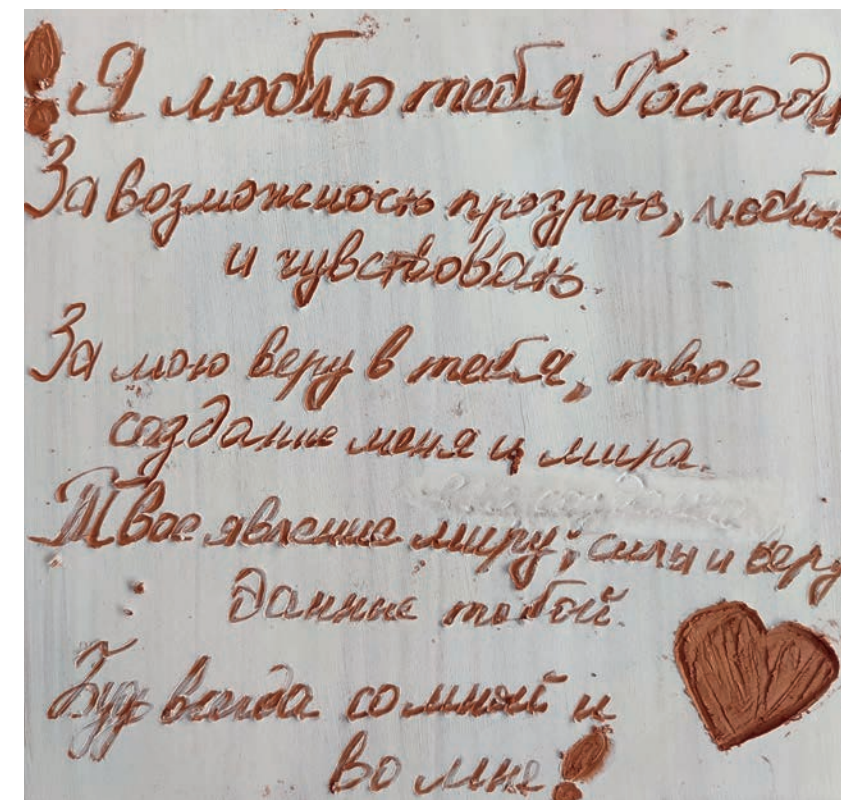 ! Я люблю тебя Господи
За возможность прозреть, любить
и чувствовать.
За мою веру в тебя, твое
создание меня и мира.
Твое явление миру; силы и веру
данные тобой.
Будь всегда со мной и
во мне!